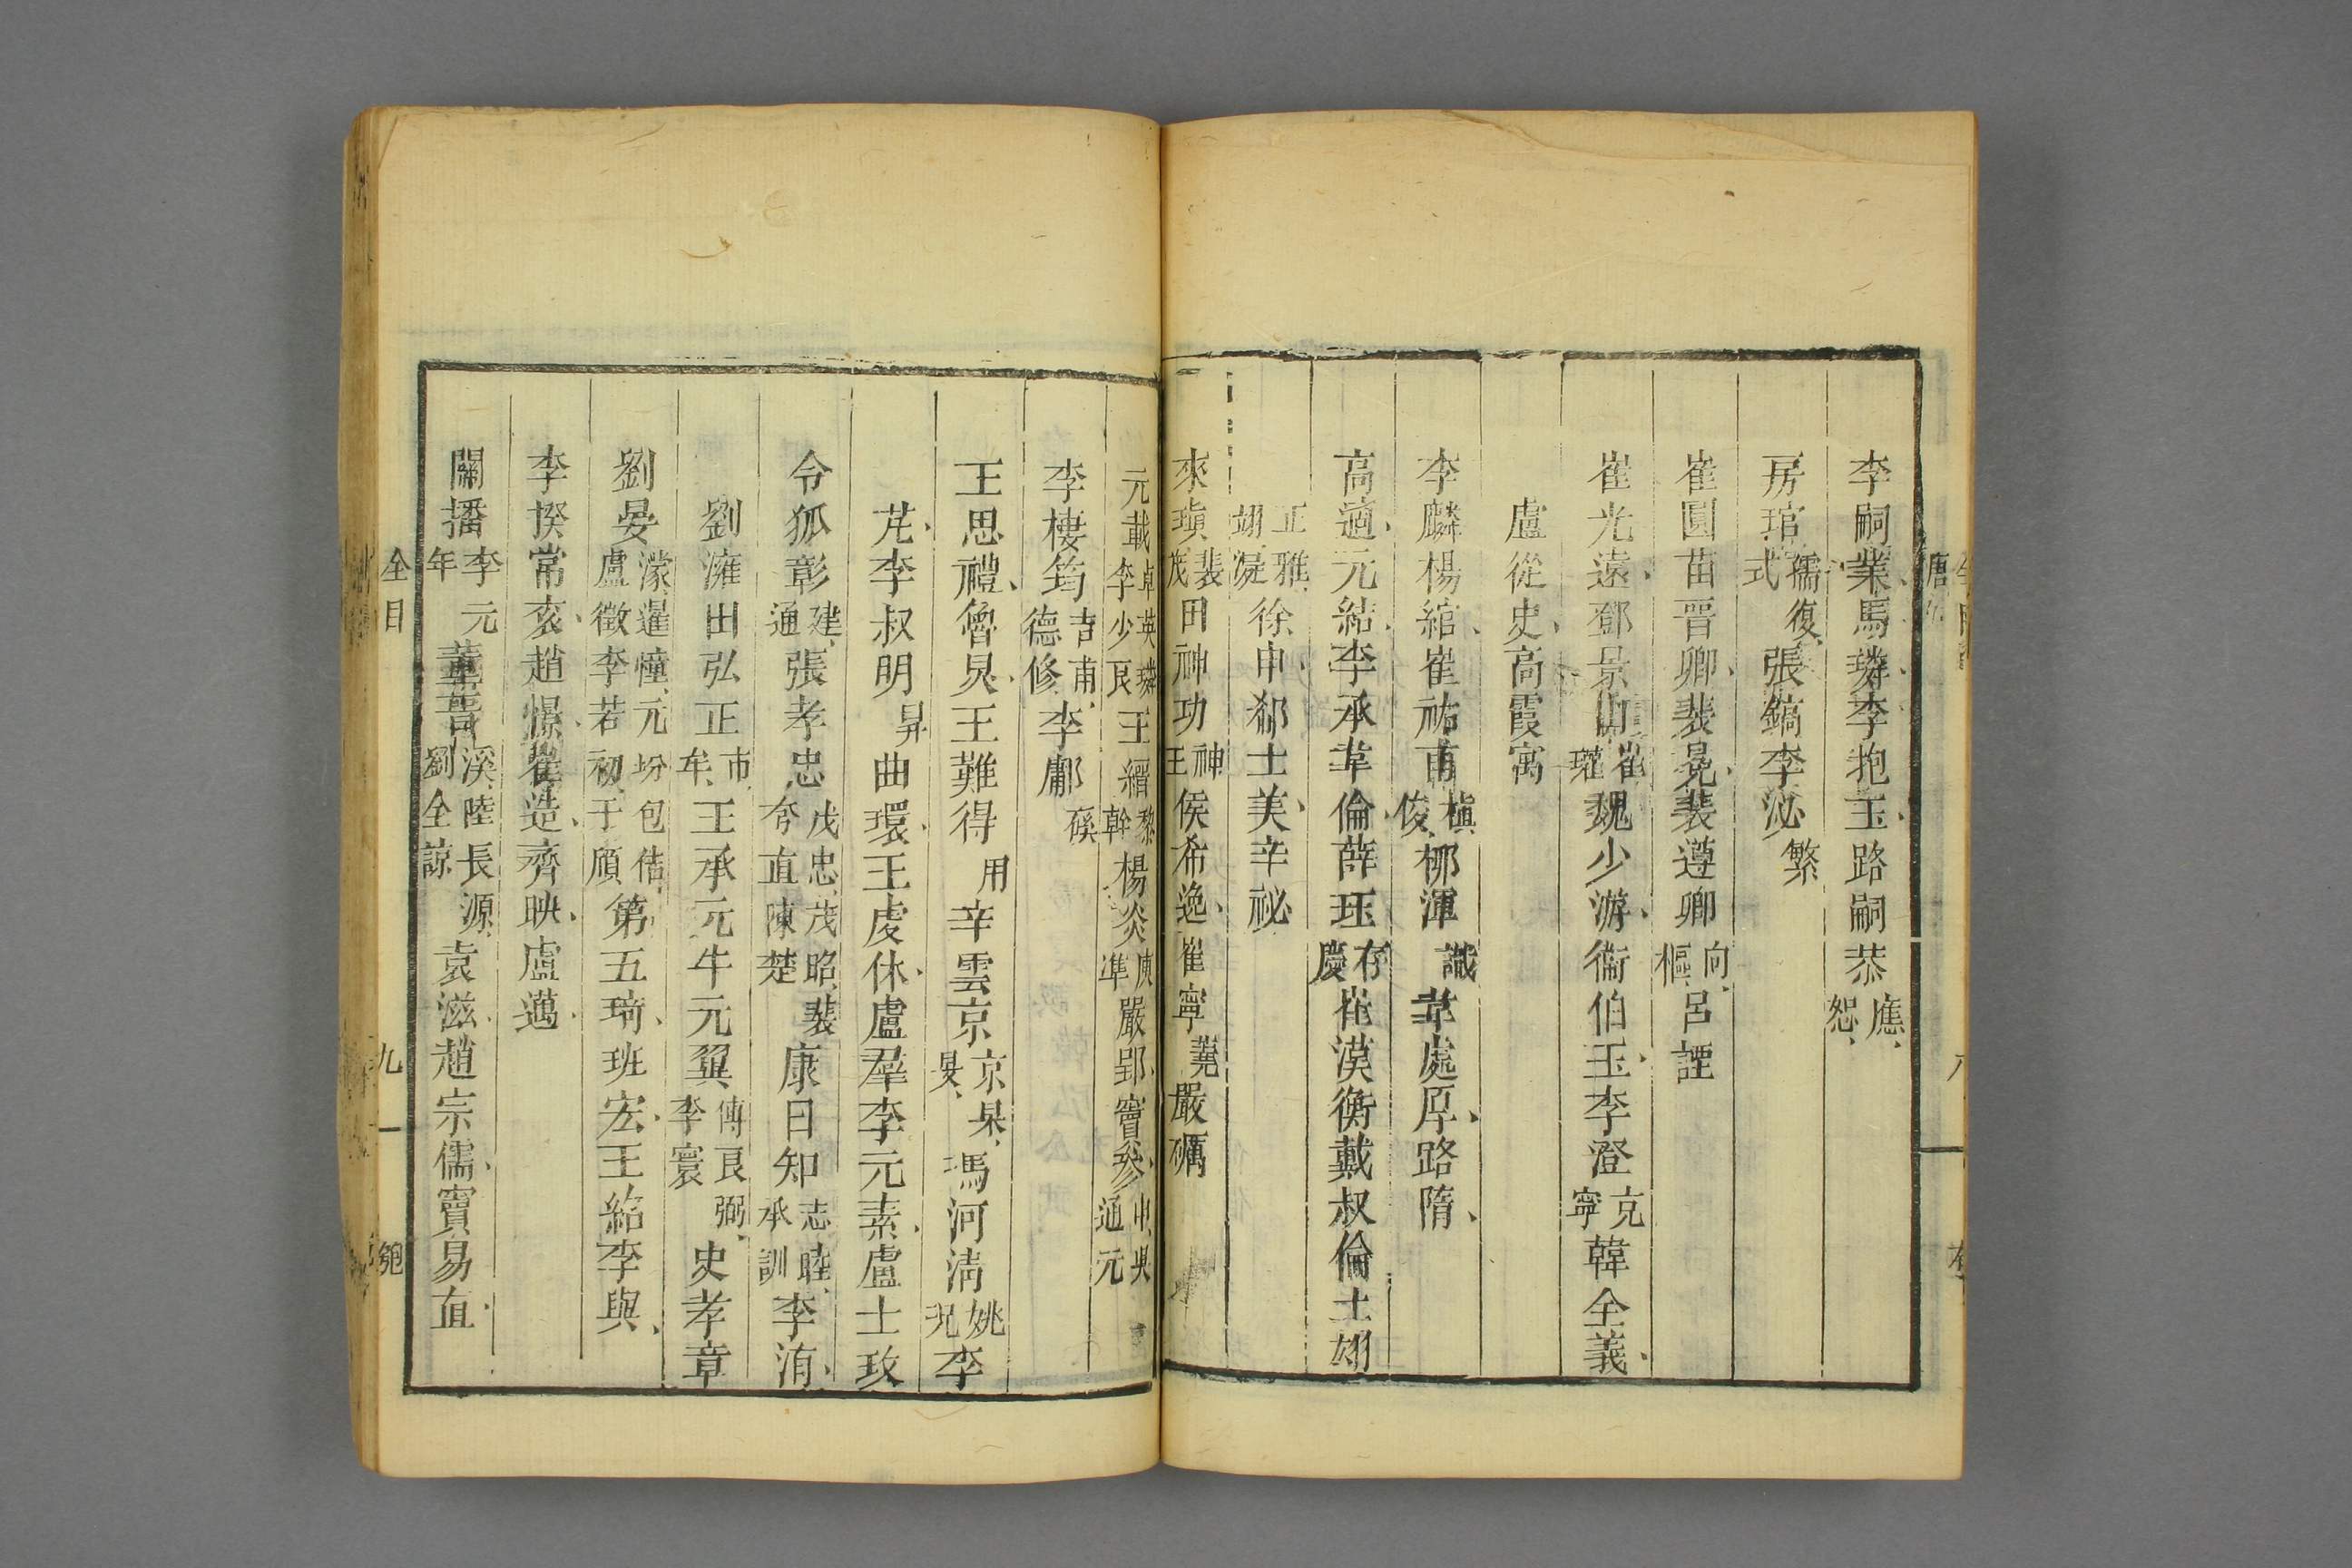 李嗣業馬璘李抱玉路嗣恭應恕
房琯孺復式張鎬李泌繁
崔圓苗晉卿裴冕裴遵卿向樞呂諲
崔光遠鄧景山崔瓘魏少游衞伯玉李澄克寧韓全義
盧從史高霞寓
李麟楊綰崔祐甫植俊柳渾識韋處厚路隋
高適元結李承韋倫薛珏存慶崔漢衡戴叔倫王翃
正雅翊凝徐申郗士美辛祕
來瑱裴茂田神功神王侯希逸崔寧蠆嚴礪
元載卓英璘李少良王縉黎幹楊炎庾準嚴郢竇參申吳通元
李棲筠吉甫德修李鄘磎
王思禮魯炅王難得用辛雲京京杲旻馮河清姚况李
芃李叔明昇曲環王虔休盧羣李元素盧士玫
令狐彰建通張孝忠茂忠茂昭裴夸直陳楚康日知志睦承訓李洧
劉澭田弘正布牟王承元牛元翼傅良弼李寰史孝章
劉晏濛暹憧元盧徵李若初坋包佶于頎第五琦班宏王紹李㒜
李揆常衮趙憬崔造齊映盧邁
關播李元年董晉溪陸長源劉全諒袁滋趙宗儒竇易直
全目
九